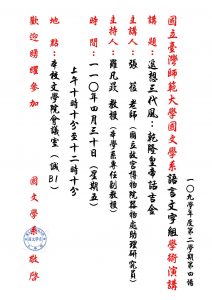 一〇九學年度第二學期第四場
國立臺灣師範大學國文學系語言文字組學術演講
講題：遙想三代風：乾隆皇帝話古金
主講人：張莅 老師（國立故宮博物院器物處助理研究員）
主持人：羅凡晸 教授（本學系專任副教授）
時間：一一〇年四月三十日（星期五）
上午十時十分至十二時十分
地點：本校文學院會議室（誠B1）
歡迎踴躍參加
國文學系 敬啟